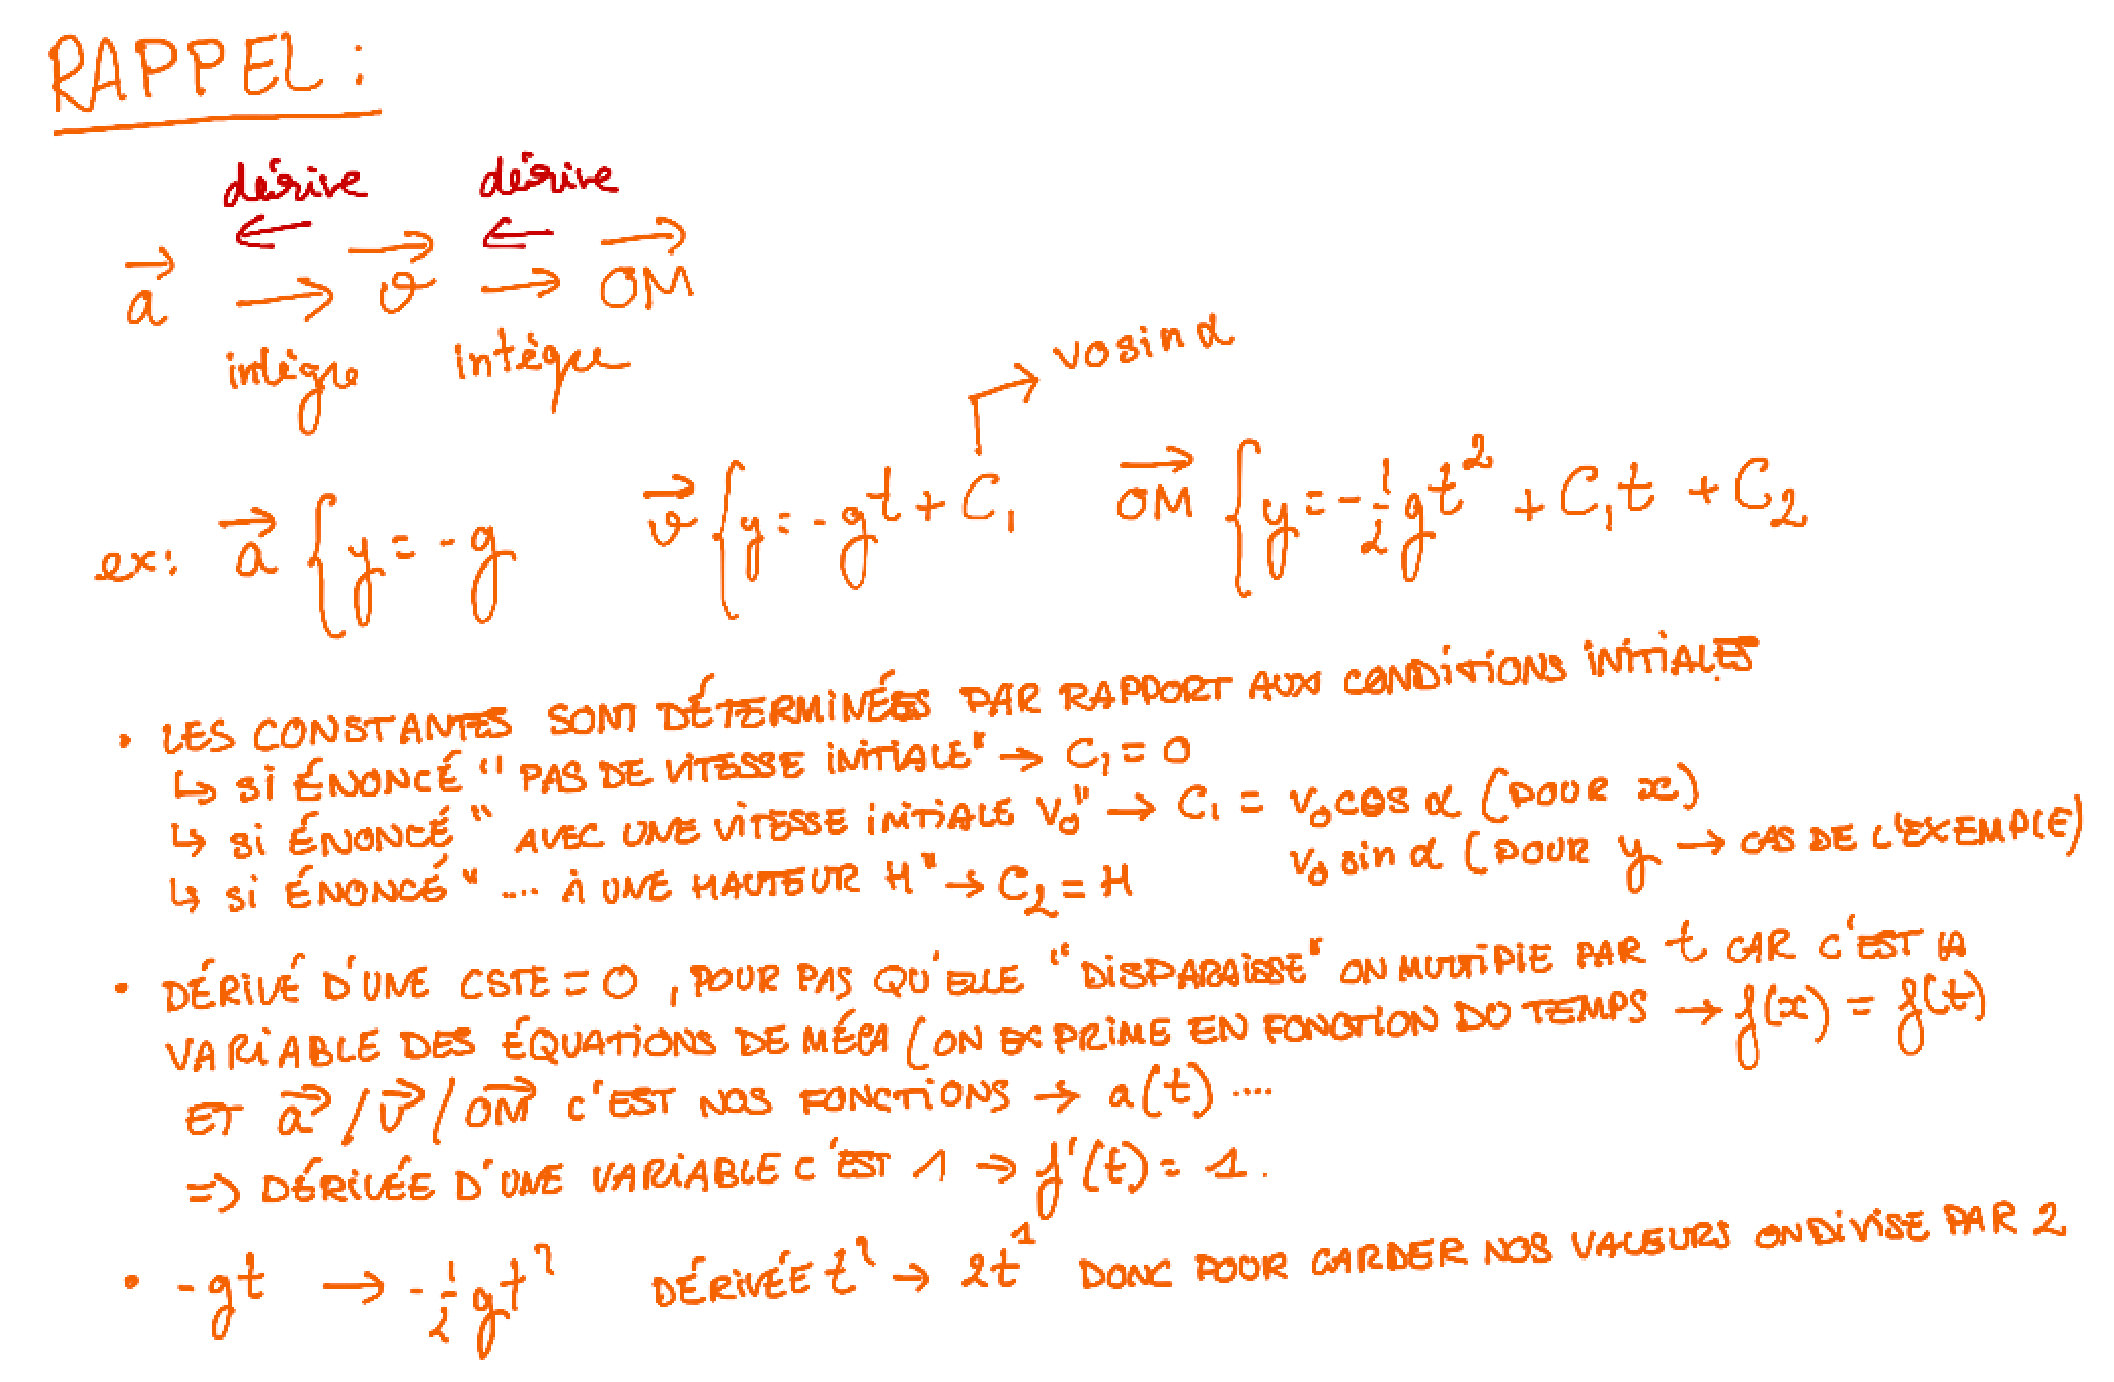 RAPPEL :
dérive dérive
← ←
a⃗ → v⃗ → OM⃗
intègre intègre
→ vosin α
ex: a⃗ { y = -g v⃗ { y = -gt + C₁ OM⃗ { y = -½gt² + C₁t + C₂
• LES CONSTANTES SONT DÉTERMINÉES PAR RAPPORT AUX CONDITIONS INITIALES
↳ Si ÉNONCÉ " PAS DE VITESSE INITIALE" → C₁ = 0
↳ Si ÉNONCÉ " AVEC UNE VITESSE INITIALE V₀" → C₁ = V₀ cos α (POUR x)
V₀ sin α (POUR y → CAS DE L'EXEMPLE)
↳ Si ÉNONCÉ " .... À UNE HAUTEUR H" → C₂ = H
• DÉRIVÉ D'UNE CSTE = 0 , POUR PAS QU'ELLE "DISPARAISSE" ON MULTIPLIE PAR t CAR C'EST LA
VARIABLE DES ÉQUATIONS DE MÉCA (ON EXPRIME EN FONCTION DU TEMPS → f(x) = f(t)
ET a⃗ / v⃗ / OM⃗ C'EST NOS FONCTIONS → a(t) ....
=> DÉRIVÉE D'UNE VARIABLE C'EST 1 → f'(t) = 1.
• -gt → -½gt² DÉRIVÉE t² → 2t¹ DONC POUR GARDER NOS VALEURS ON DIVISE PAR 2